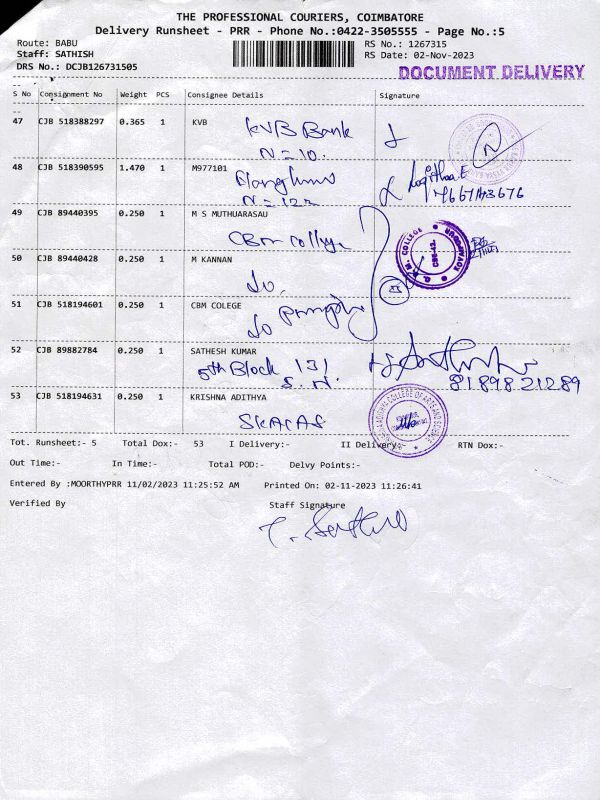 THE PROFESSIONAL COURIERS, COIMBATORE
Delivery Runsheet - PRR - Phone No.:0422-3505555 - Page No.:5
Route: BABU RS No.: 1267315
Staff: SATHISH RS Date: 02-Nov-2023
DRS No.: DCJB126731505
DOCUMENT DELIVERY
S No Consignment No Weight PCS Consignee Details Signature
47 CJB 518388297 0.365 1 KVB
KVB Bank
N = 10.
48 CJB 518390595 1.470 1 M977101
N = 123
49 CJB 89440395 0.250 1 M S MUTHUARASU
CBM College
50 CJB 89440428 0.250 1 M KANNAN
51 CJB 518194601 0.250 1 CBM COLEGE
52 CJB 89882784 0.250 1 SATHESH KUMAR
5th Block 131
S. N.
8189821289
53 CJB 518194631 0.250 1 KRISHNA ADITHYA
SKACAS
Tot. Runsheet:- 5 Total Dox:- 53 I Delivery:- II Delivery:- RTN Dox:-
Out Time:- In Time:- Total POD:- Delvy Points:-
Entered By :MOORTHYPRR 11/02/2023 11:25:52 AM Printed On: 02-11-2023 11:26:41
Verified By Staff Signature